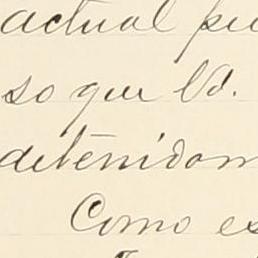 actual pu
so que Vd.
detenidam
Como es